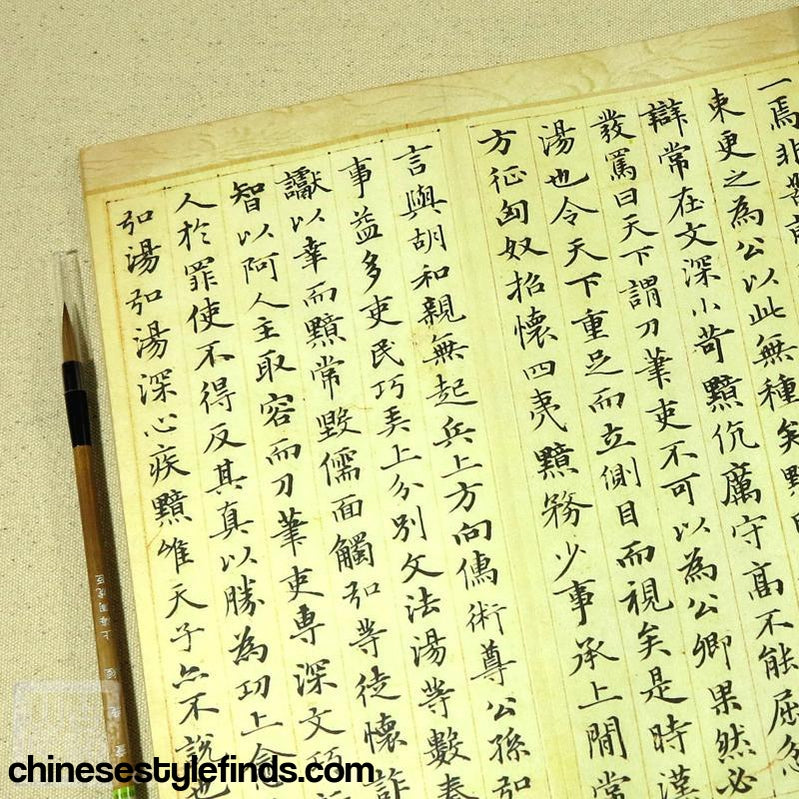 一焉非苦
束更之為公以此無種矣黯
辯常在文深小苛黯伉厲守高不能屈忿
發罵曰天下謂刀筆吏不可以為公卿果然必
湯也令天下重足而立側目而視矣是時漢
方征匈奴招懷四夷黯務少事承上間常
言與胡和親無起兵上方向儒術尊公孫弘
事益多吏民巧弄上分別文法湯等數奏
讞以幸而黯常毀儒面觸弘等徒懷詐
智以阿人主取容而刀筆吏専深文巧
人於罪使不得反其真以勝為功上愈
弘湯弘湯深心疾黯唯天子亦不說也
chinesestylefinds.com